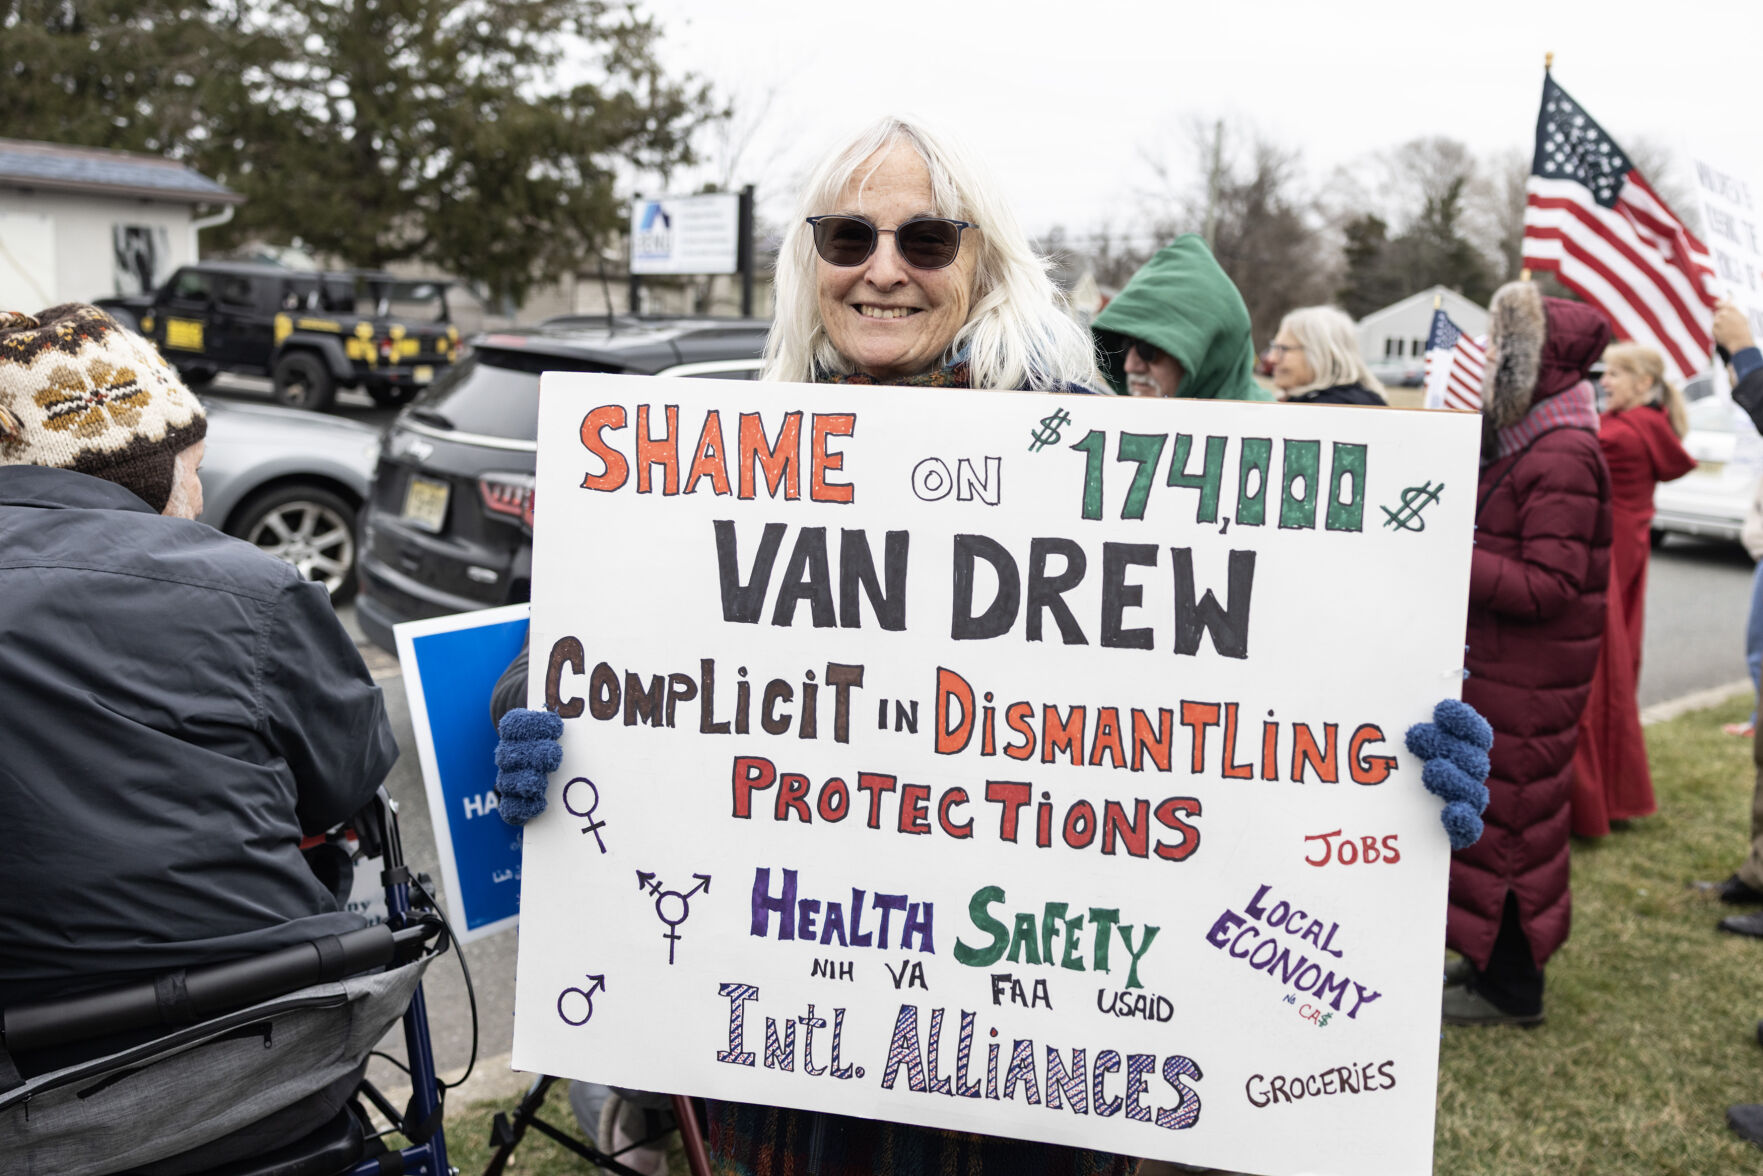 SHAME ON $174,000$
VAN DREW
COMPLICIT IN DISMANTLING
PROTECTIONS
JOBS
HEALTH SAFETY
NIH VA FAA USAID
LOCAL
ECONOMY
No CA$
INTL. ALLIANCES
GROCERIES
HA